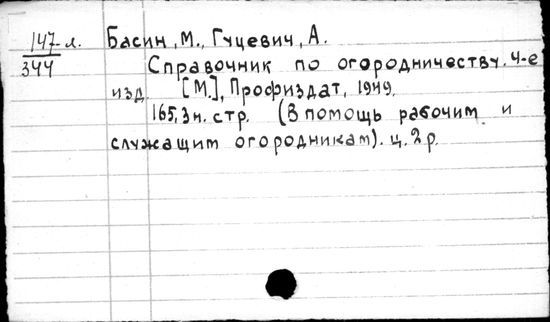 147-л. Басин, М., Гуцевич, А.
344 Справочник по огородничеству. 4-е
изд. [М.], Профиздат, 1949.
165,3 н. стр. (В помощь рабочим и
служащим огородникам). ц. 2 р.